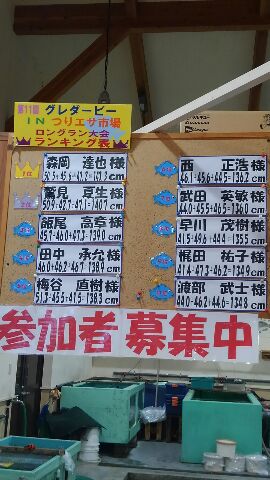 第11回 グレダービー
IN つりエサ市場
ロングラン大会
ランキング表
森岡 達也 様
鷲見 夏生 様
飯尾 高章 様
45.7-46.0-47.3-139.0 cm
田中 承允 様
46.0-46.2-46.7-138.9 cm
梅谷 直樹 様
51.3-45.5-41.5-138.3 cm
西 正浩 様
46.1-45.6-44.5-136.2 cm
武田 英敏 様
44.0-45.5-46.5-136.0 cm
早川 茂樹 様
41.5-49.6-44.4-135.5 cm
梶田 祐子 様
41.4-47.3-46.2-134.9 cm
渡部 武士 様
44.0-46.2-44.6-134.8 cm
参加者募集中